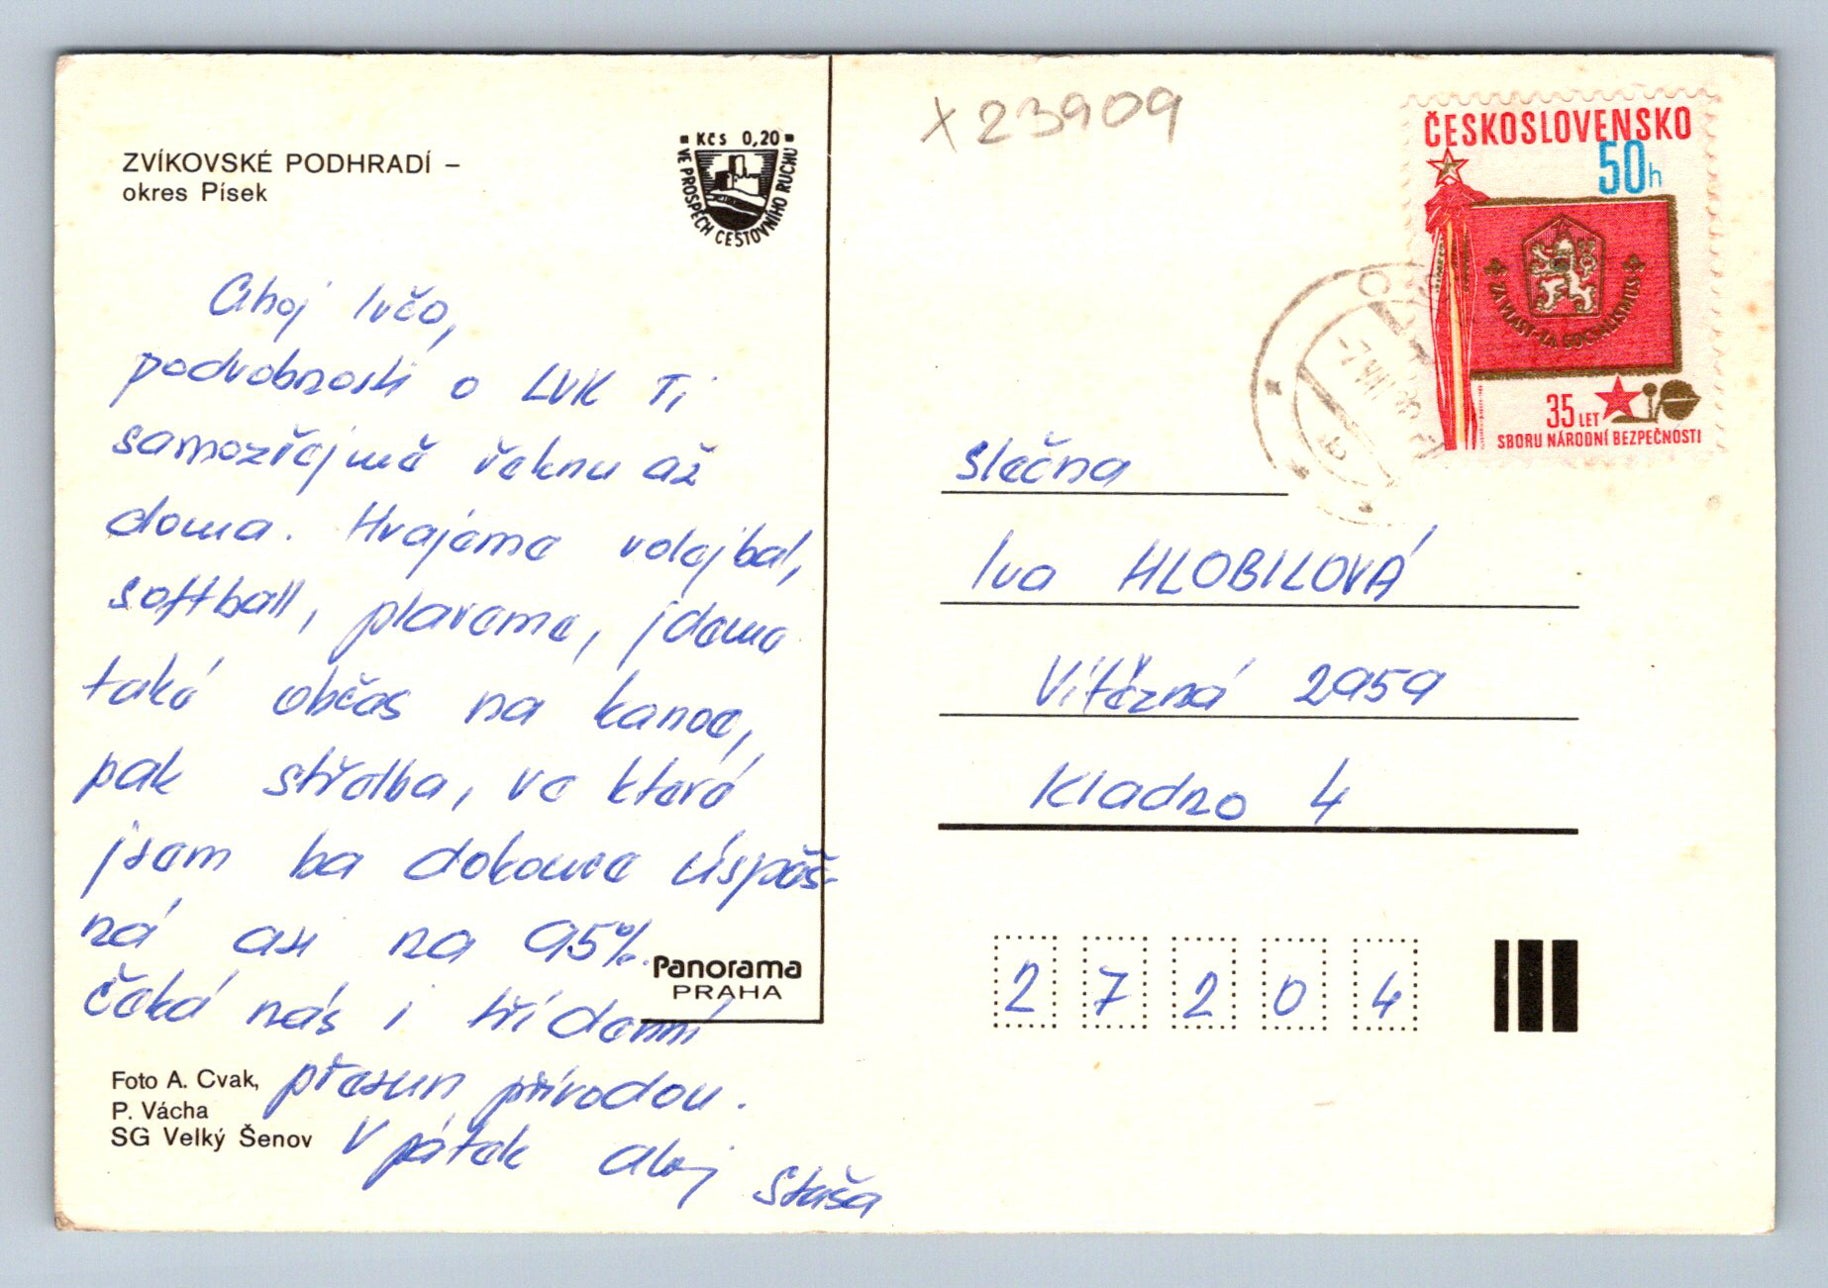 ZVÍKOVSKÉ PODHRADÍ –
okres Písek
Kčs 0,20
VE PROSPĚCH CESTOVNÍHO RUCHU
Ahoj Ivčo,
podrobnosti o LVK Ti
samozřejmě řeknu až
doma. Hrajeme volejbal,
softball, plaveme, jdeme
také občas na kanoe,
pak střelba, ve které
jsem ba dokonce úspěš-
ná asi na 95%.
Čeká nás i třídenní
přesun přírodou.
V pátek ahoj
Staša
Panorama
PRAHA
Foto A. Cvak,
P. Vácha
SG Velký Šenov
X23909
ČESKOSLOVENSKO
50h
ZA VLAST · ZA SOCIALISMUS
35 LET
SBORU NÁRODNÍ BEZPEČNOSTI
slečna
Iva HLOBILOVÁ
Vítězná 2959
Kladno 4
2 7 2 0 4